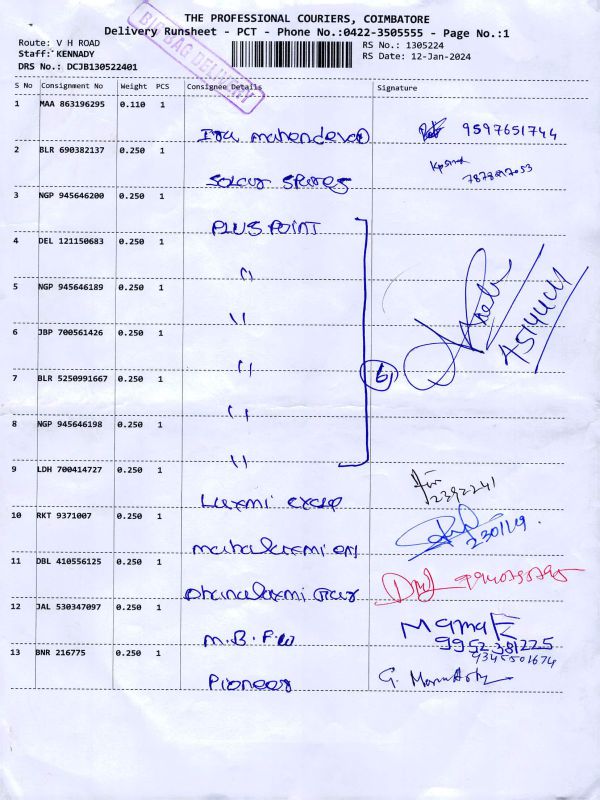 THE PROFESSIONAL COURIERS, COIMBATORE
Delivery Runsheet - PCT - Phone No.:0422-3505555 - Page No.:1
Route: V H ROAD
Staff: KENNADY
DRS No.: DCJB130522401
RS No.: 1305224
RS Date: 12-Jan-2024
BIG BAG DELIVERY
S No Consignment No Weight PCS Consignee Details Signature
1 MAA 863196295 0.110 1
9597651744
2 BLR 690382137 0.250 1
Solar Spares
3 NGP 945646200 0.250 1
PLUS POINT
4 DEL 121150683 0.250 1
"
5 NGP 945646189 0.250 1
"
6 JBP 700561426 0.250 1
"
7 BLR 5250991667 0.250 1
" 6
8 NGP 945646198 0.250 1
"
9 LDH 700414727 0.250 1
Luxmi 2392241
10 RKT 9371007 0.250 1
mahalaxmi
11 DBL 410556125 0.250 1
Dhanalaxmi
12 JAL 530347097 0.250 1
M.B.F.W
9952381225
9345501674
13 BNR 216775 0.250 1
Pioneer G.